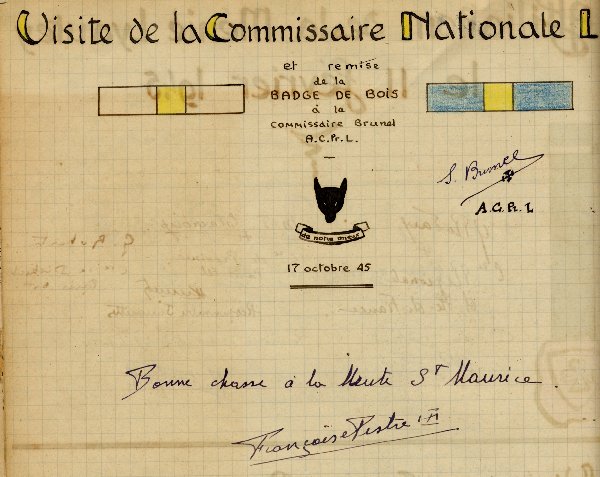 Visite de la Commissaire Nationale L
et remise
de la
BADGE DE BOIS
à la
COMMISSAIRE BRUNEL
A.C.Pr.L.
S. Brunel
A.C.Pr.L
de notre mieux
17 octobre 45
Bonne chasse à la Meute St Maurice.
Françoise Pestre